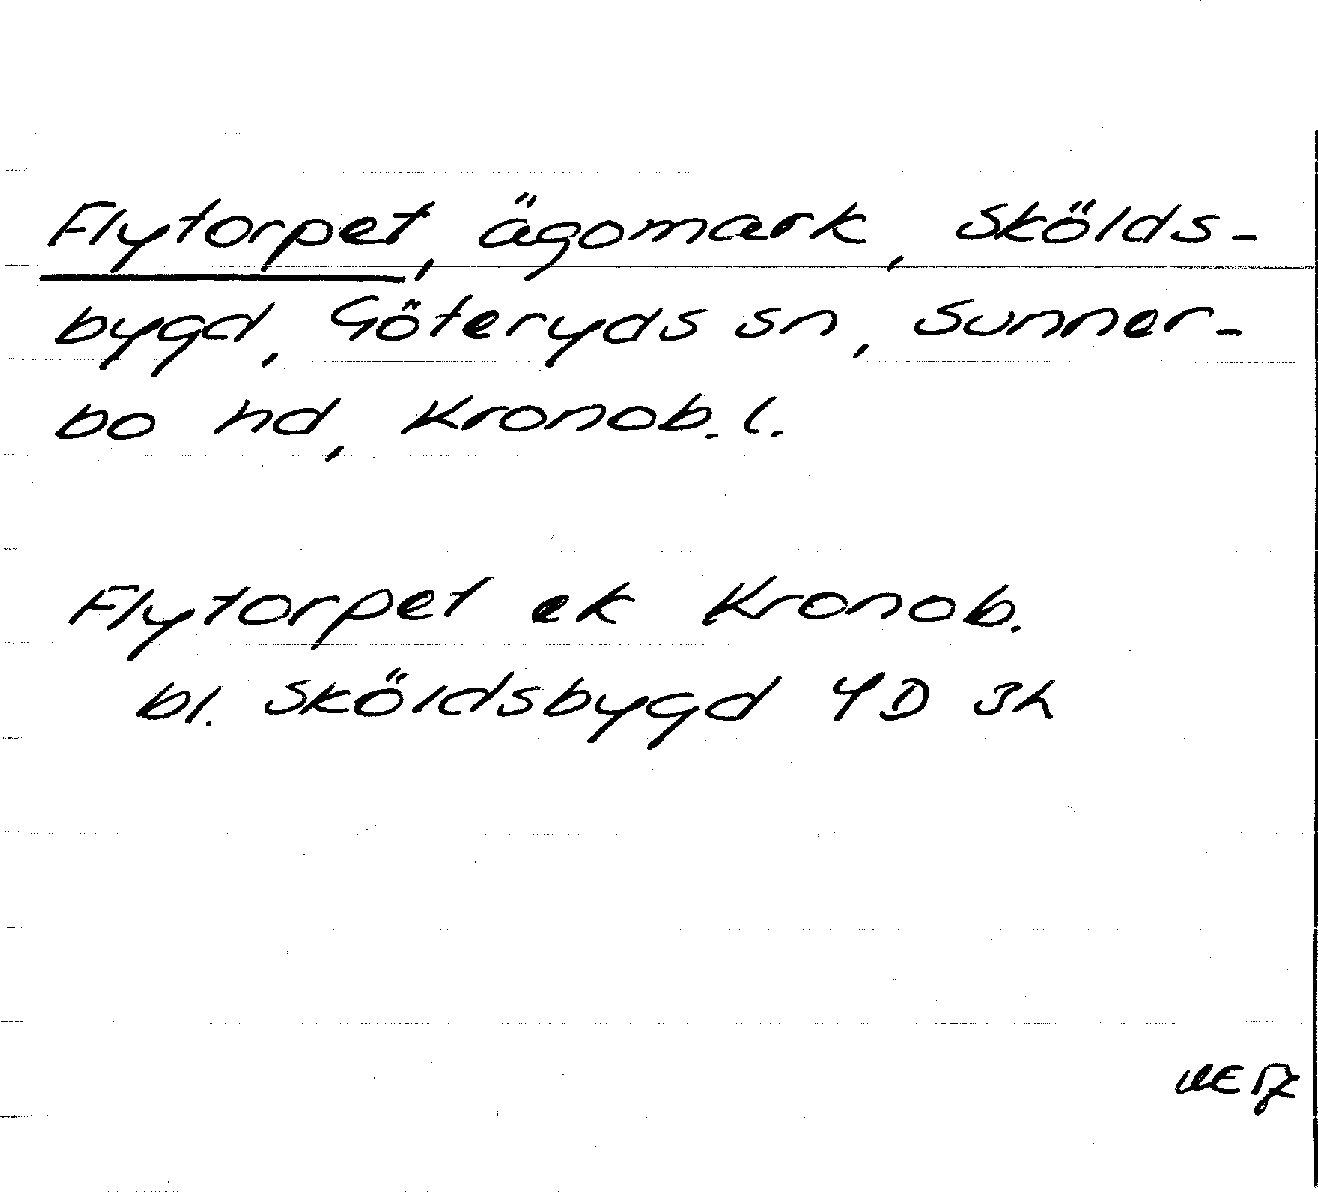 Flytorpet, ägomark, Skölds-
bygd, Göteryds sn, Sunner-
bo hd, Kronob. l.
Flytorpet ek Kronob.
bl. Sköldsbygd 4D 3h